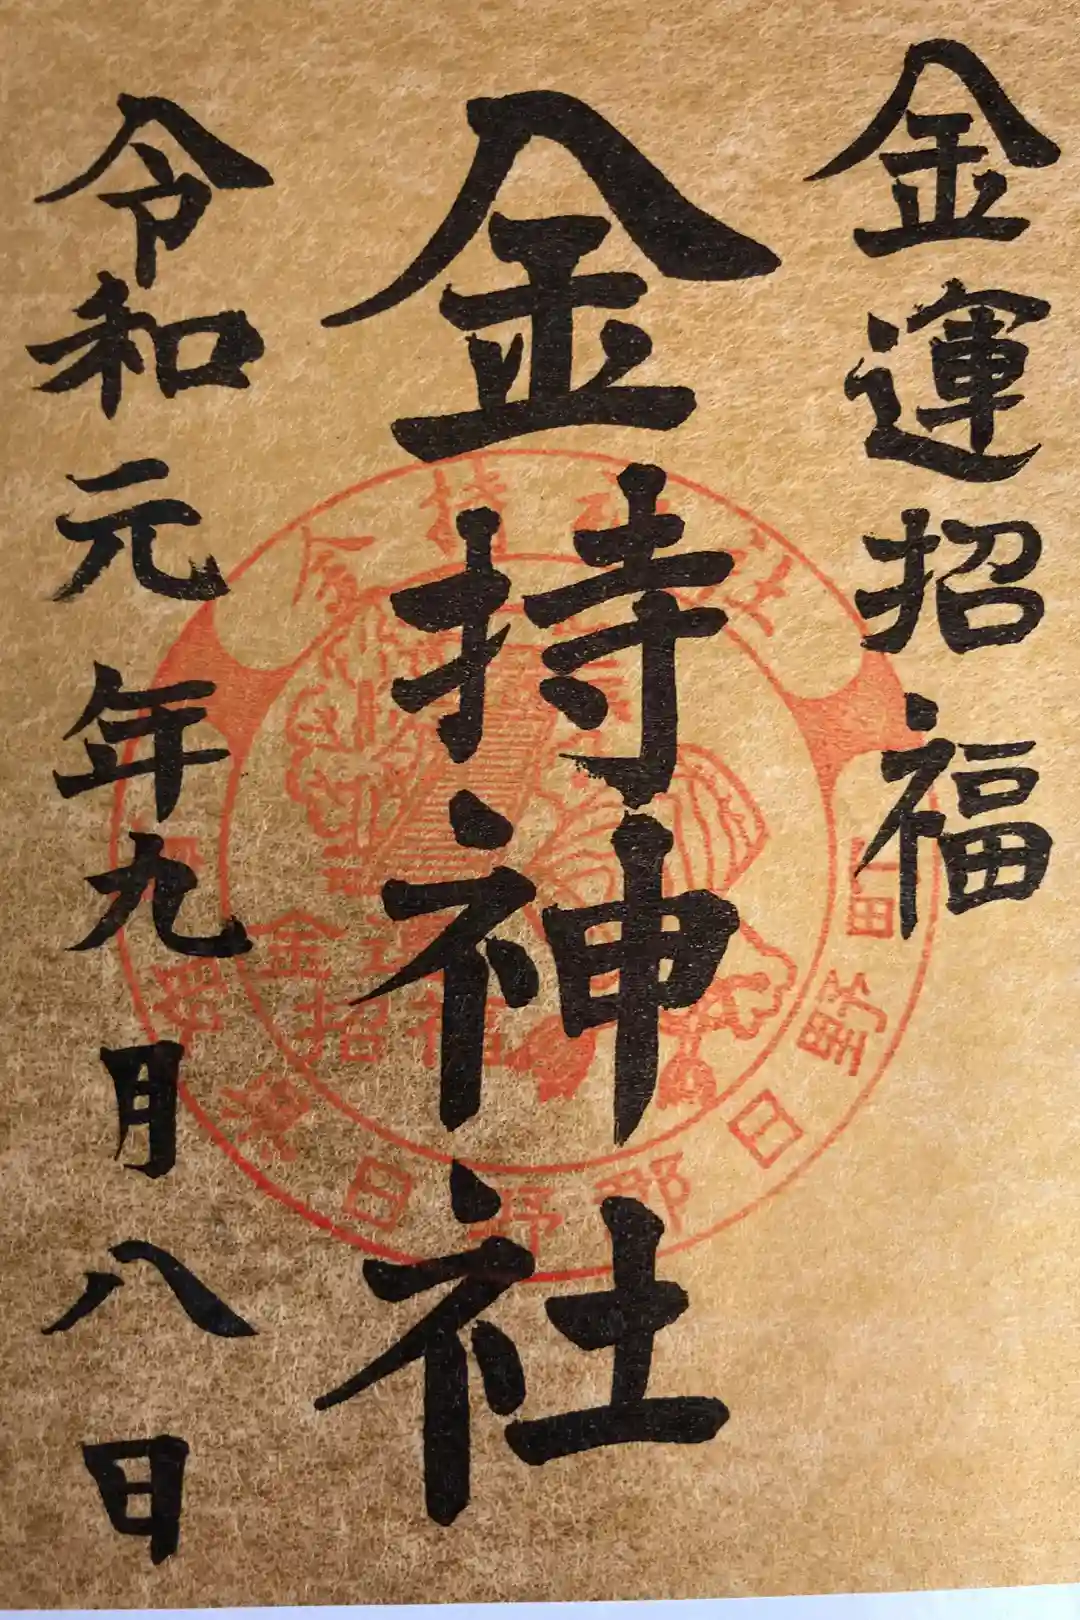 金運招福
金持神社
令和元年九月八日
金持神社
金運
招福
日野郡日野町